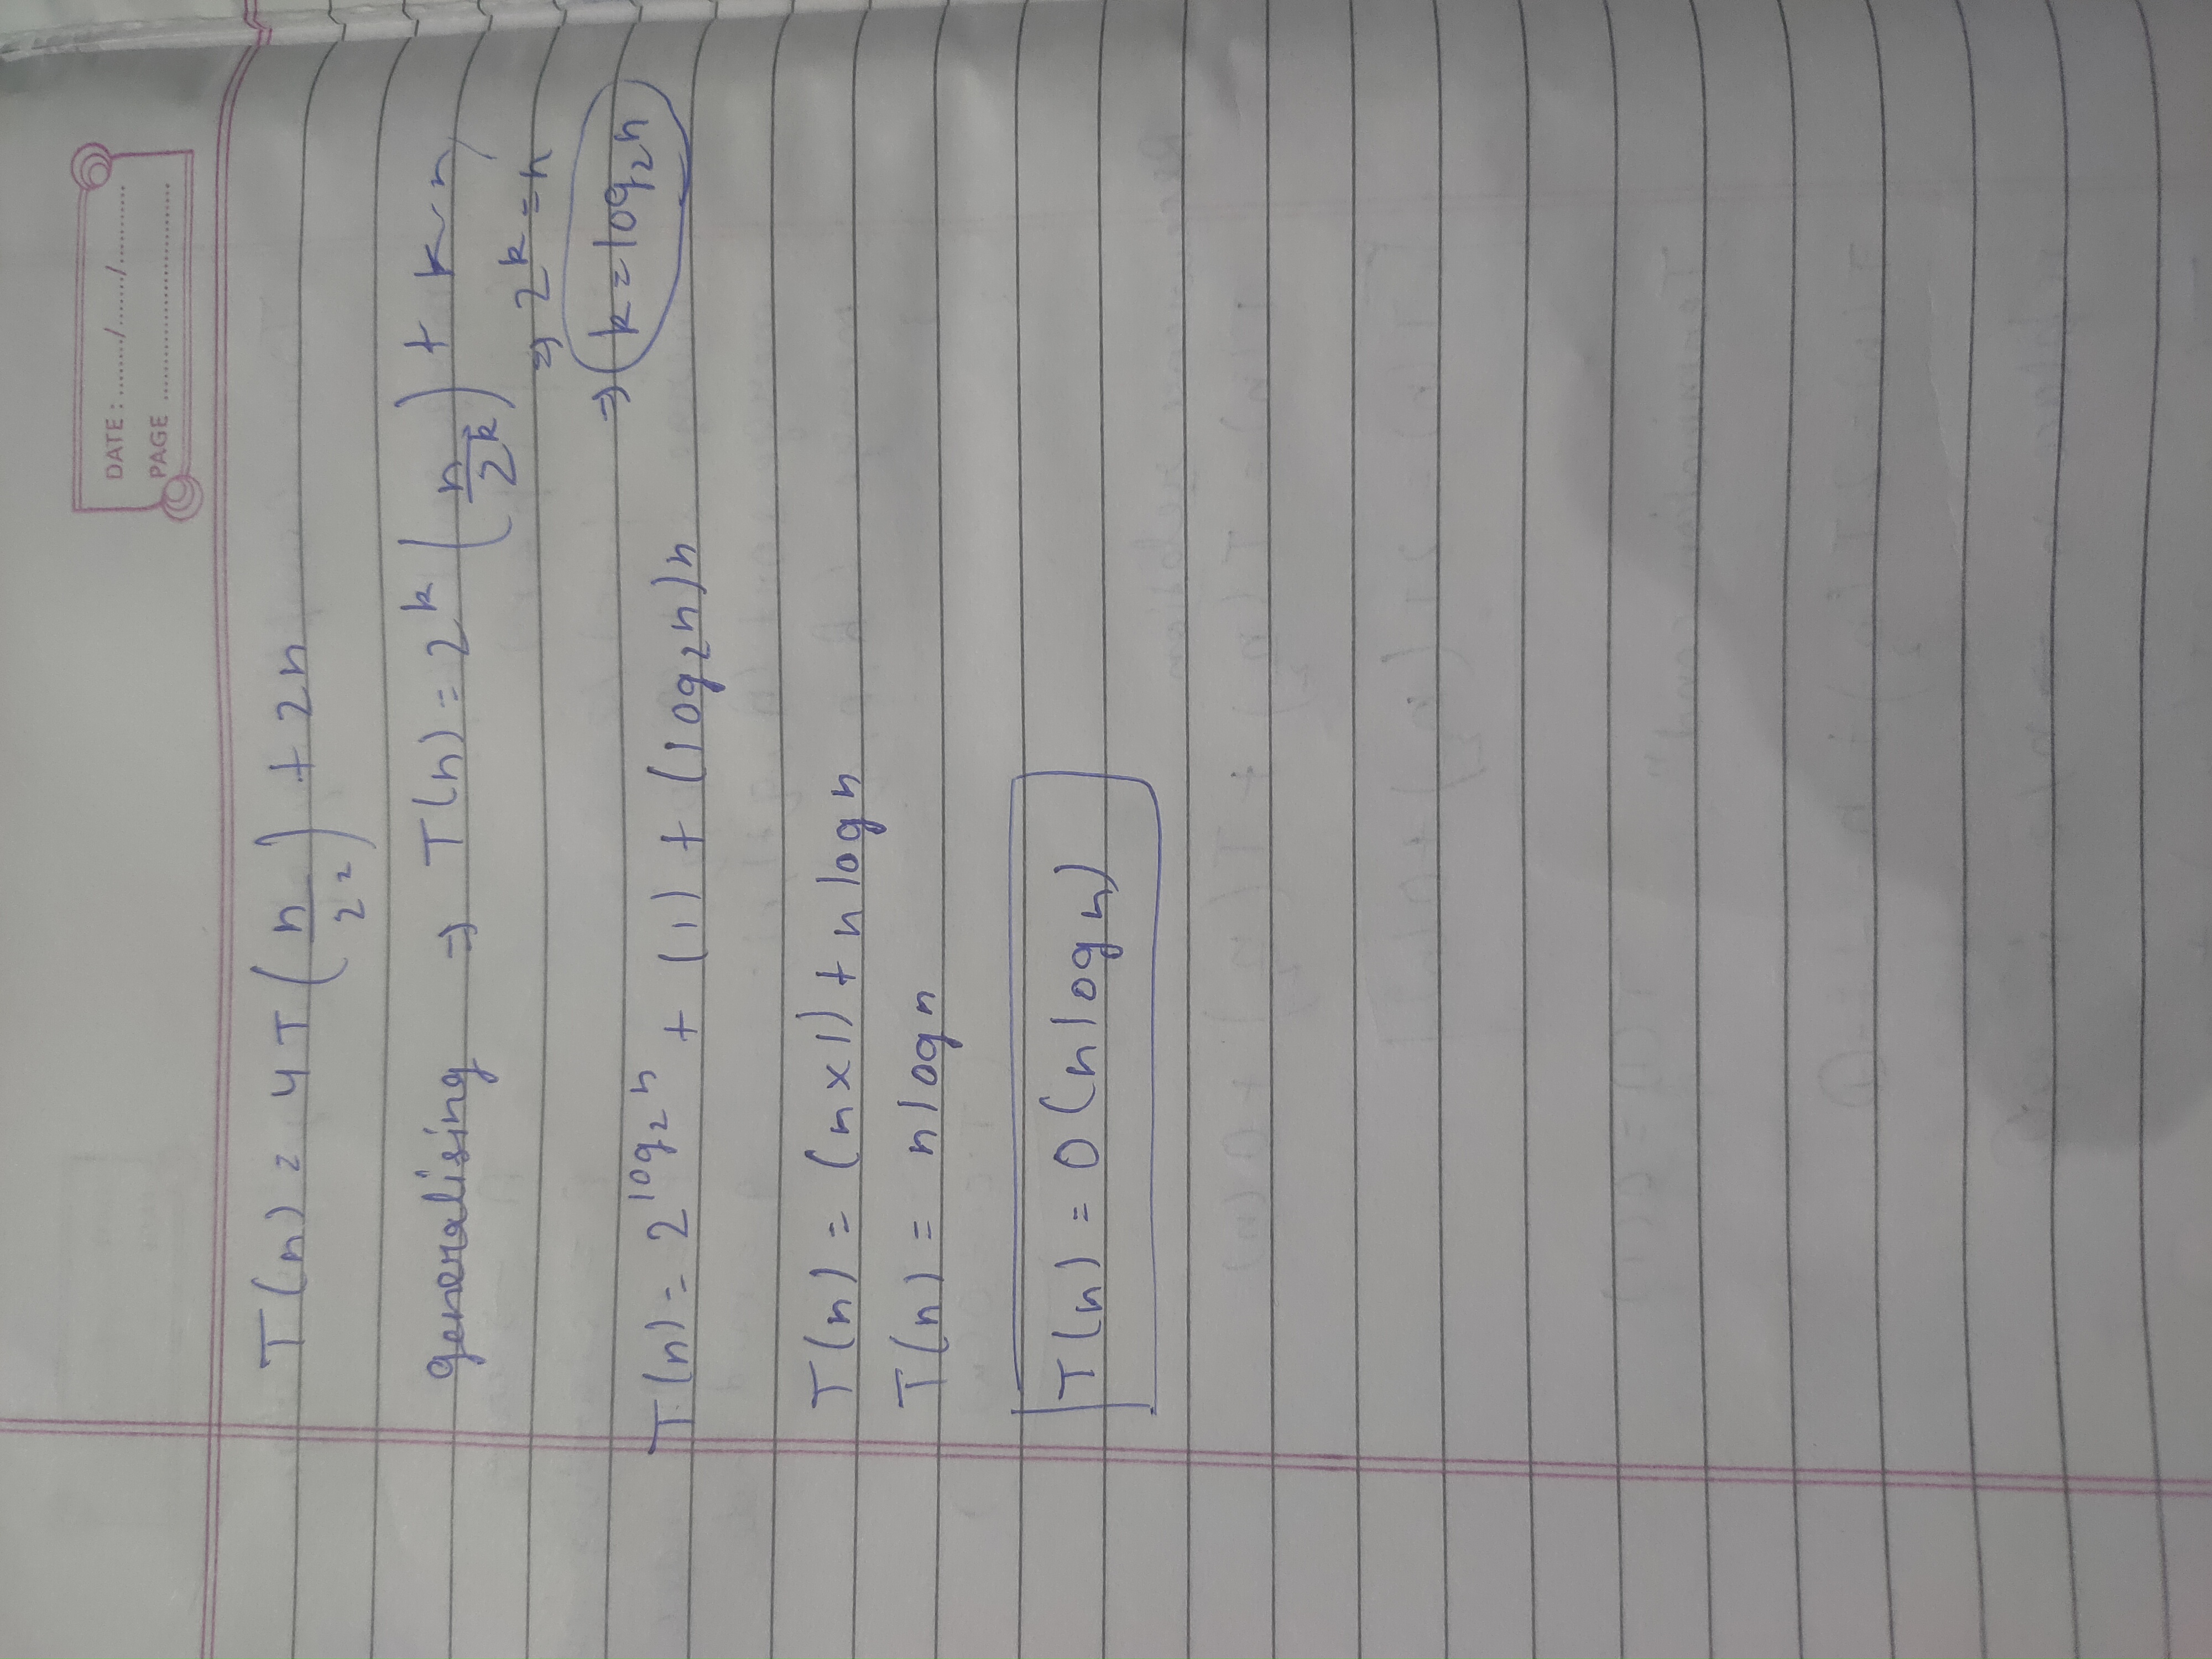 DATE : ......../......../.........
PAGE ..............................
T(n) = 4T(n/2²) + 2n
generalising ⇒ T(n) = 2^k (n/2^k) + kn
⇒ 2^k = n
⇒ k = log₂n
T(n) = 2^log₂n + (1) + (log₂n)n
T(n) = (n×1) + n log n
T(n) = n log n
T(n) = O(n log n)